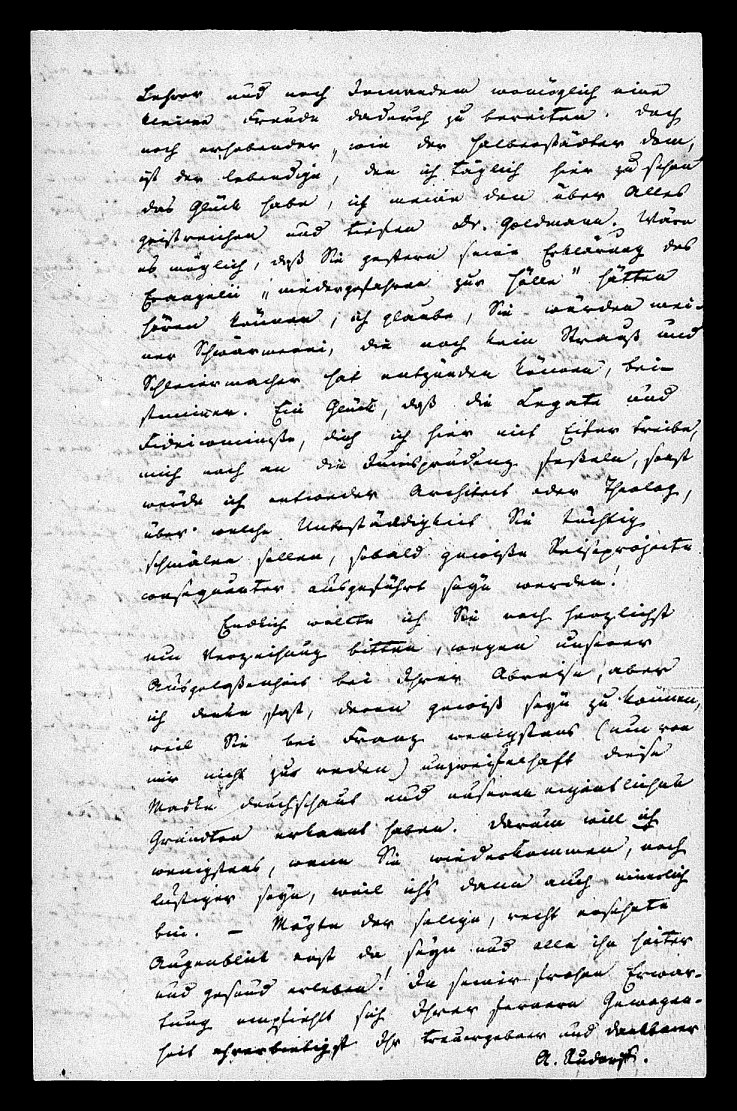 Lehrer und noch Jemandem womöglich eine
kleine Freude dadurch zu bereiten. Doch
noch erhebender, wie der Halberstädter Dom,
ist der lebendige, den ich täglich hier zu sehen
das Glück habe, ich meine den über Alles
geistreichen und tiefen Dr. Goldmann. Wäre
es möglich, daß Sie gestern seine Erklärung des
Evangelii „niedergefahren zur Hölle" hätten
hören können, ich glaube, Sie würden mei-
ner Schwärmerei, die noch kein Strauß und
Schleiermacher hat entzünden können, bei-
stimmen. Ein Glück, daß die Legate und
Fideicommisse, die ich hier mit Eifer treibe,
mich noch an die Jurisprudenz fesseln, sonst
würde ich entweder Architect oder Theolog,
über welche Unbeständigkeit Sie tüchtig
schmälen sollen, sobald gewisse Reiseprojecte
consequenter ausgeführt seyn werden!
Endlich wollte ich Sie noch herzlichst
um Verzeihung bitten, wegen unserer
Ausgelaßenheit bei Ihrer Abreise, aber
ich denke fast, deren gewiß seyn zu können,
weil Sie bei Franz wenigstens (um von
mir nicht zu reden) unzweifelhaft diese
Maske durchschaut und unseren eigentlichen
Grundton erkannt haben. Darum will ich
wenigstens, wenn Sie wiederkommen, noch
lustiger seyn, weil ichs dann auch innerlich
bin. – Mögte der selige, recht ersehnte
Augenblick erst da seyn und alle ihn heiter
und gesund erleben! In seiner frohen Erwar-
tung empfiehlt sich Ihrer fernern Gewogen-
heit ehrerbietigst Ihr treuergebener und dankbarer
A. Rudorff.